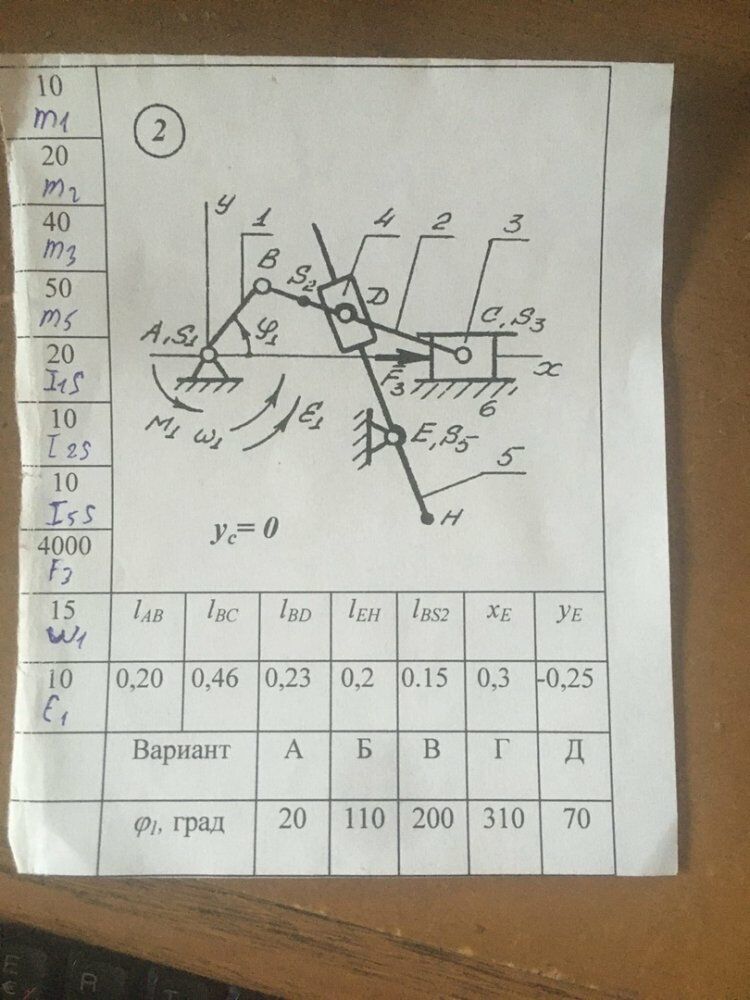 10
m1
20
m2
40
m3
50
m5
20
I1S
10
I2S
10
I5S
4000
F3
15
ω1
10
ε1
2
y
1
4
2
3
B
S2
D
C, S3
A, S1
φ1
F3
x
6
M1
ω1
ε1
E, S5
5
H
yc= 0
lAB lBC lBD lEH lBS2 xE yE
0,20 0,46 0,23 0,2 0.15 0,3 -0,25
Вариант А Б В Г Д
φ1, град 20 110 200 310 70